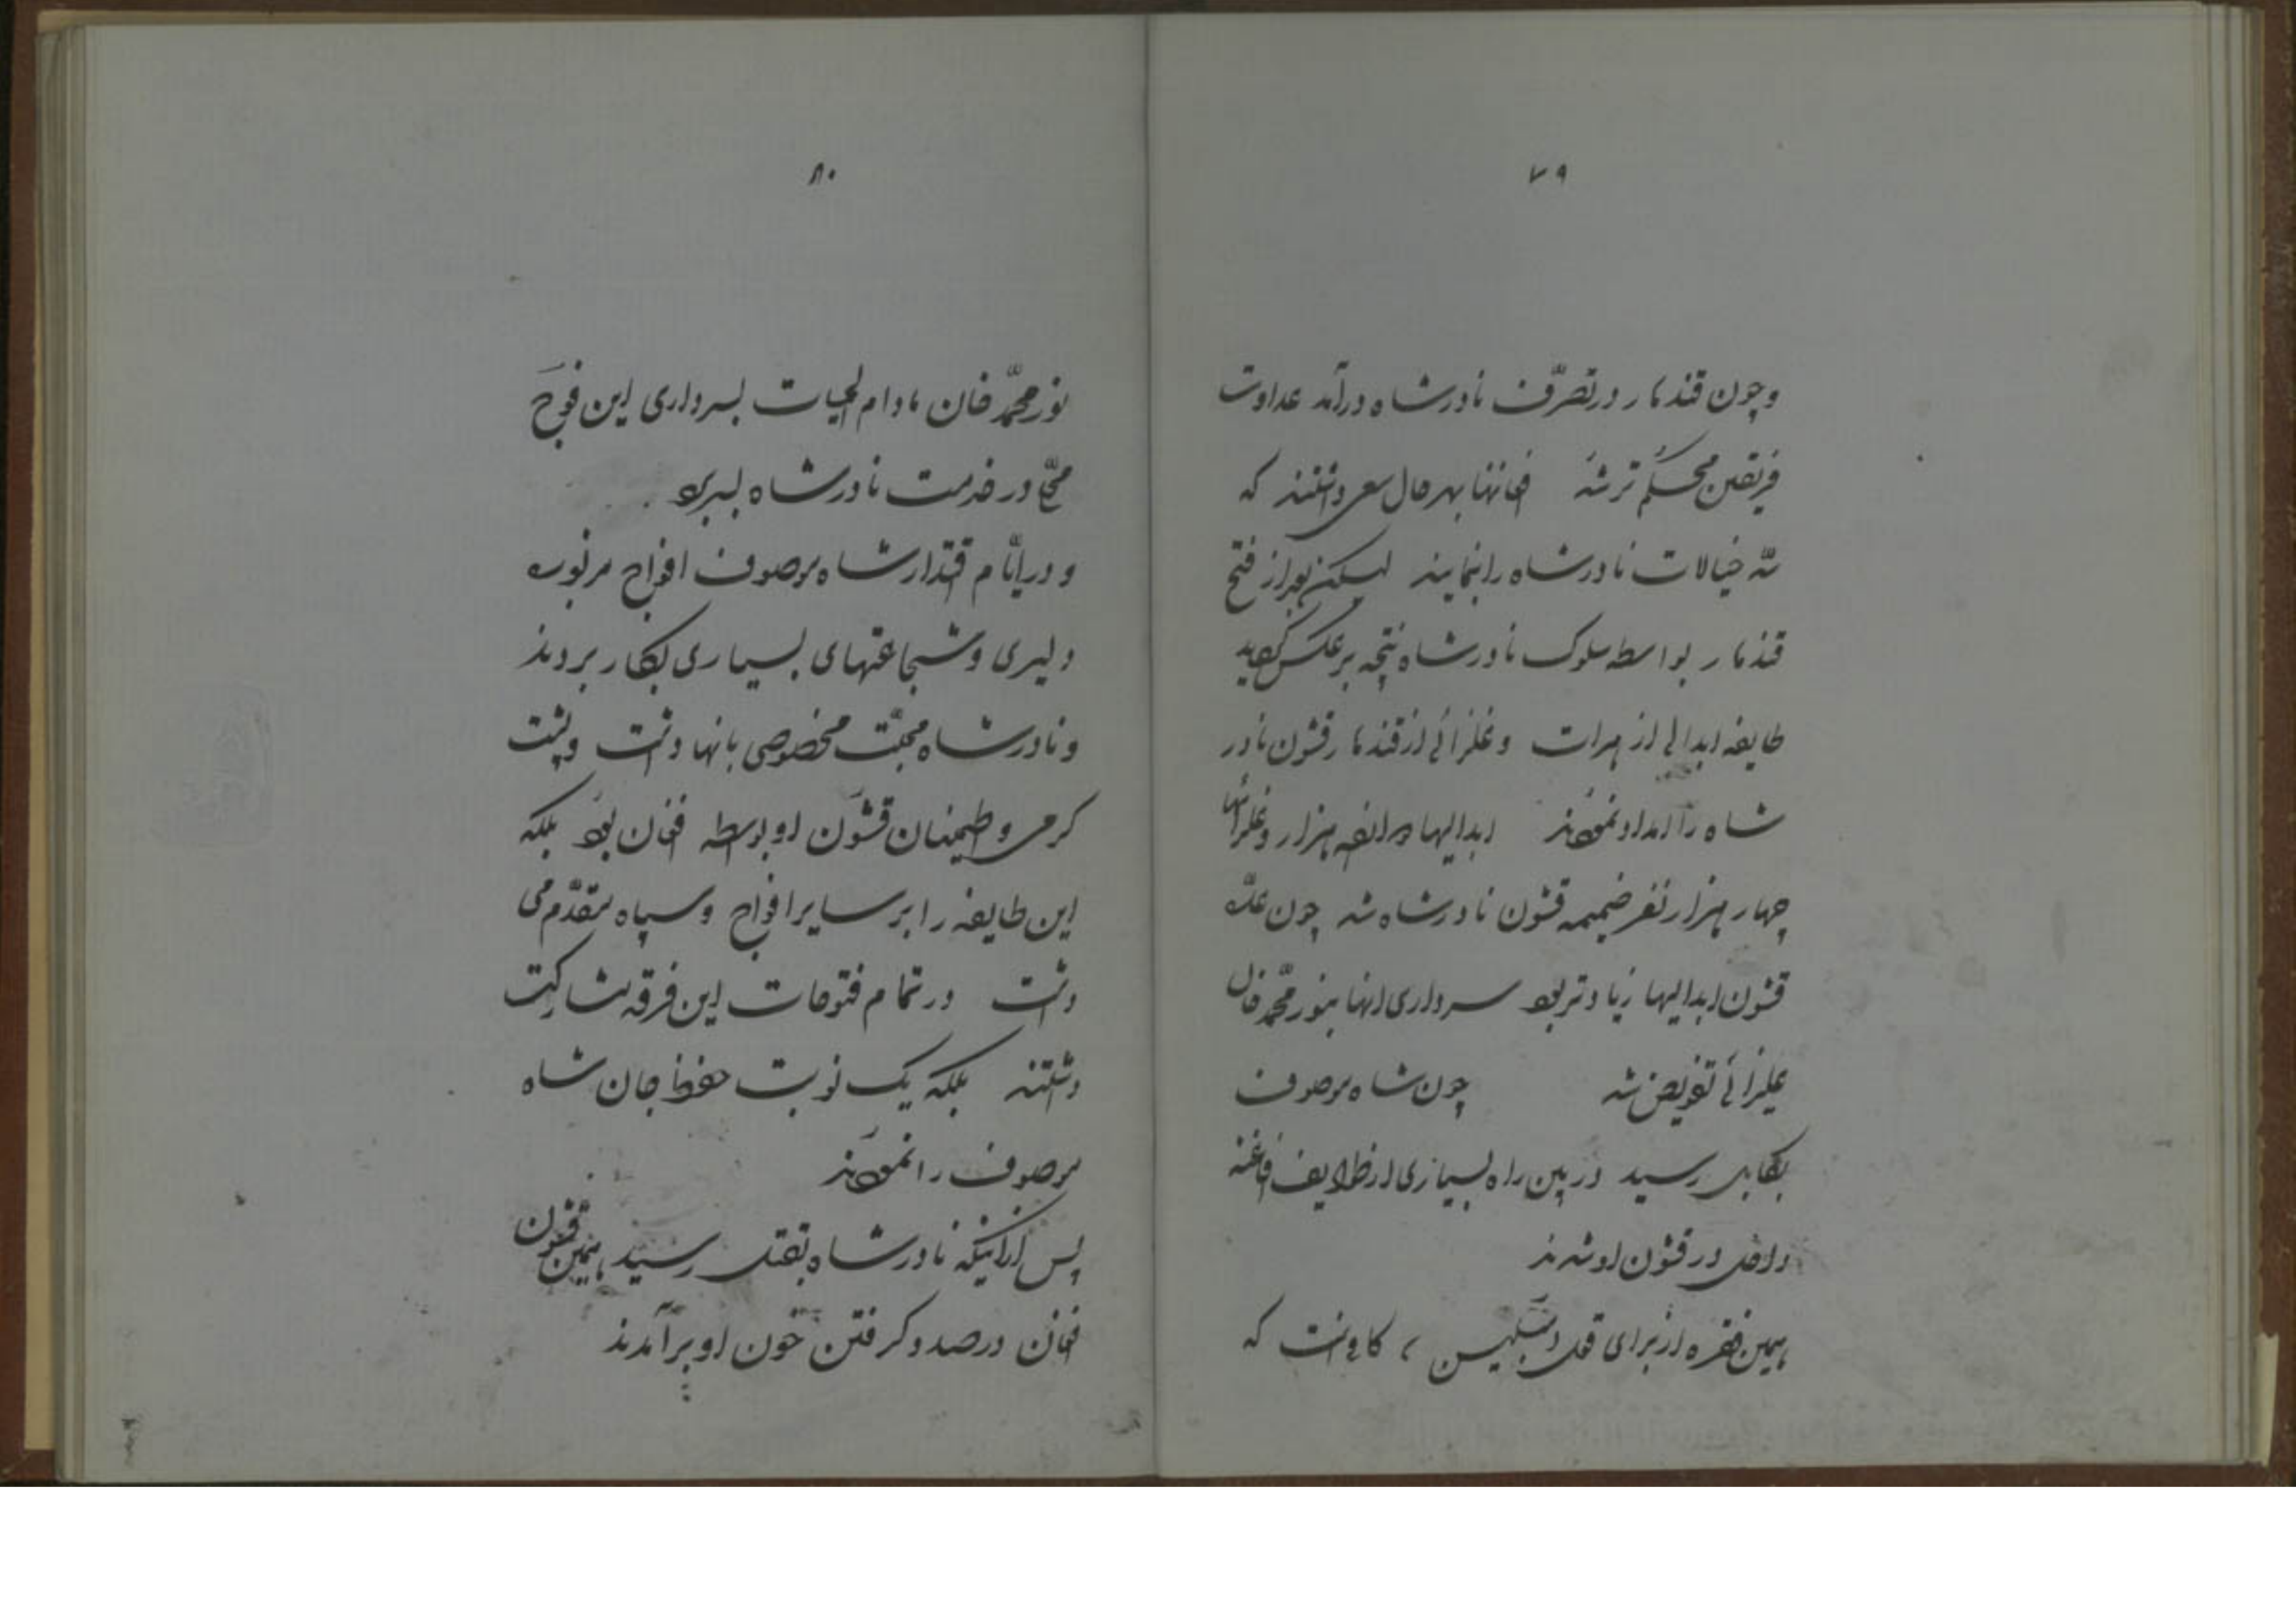 ۷۹
وچون قندهار در تصرّف نادرشاه درآمد عداوت
فریقین محکم تر شد افغانها بهر حال سعی داشتند که
سدّ خیالات نادرشاه را نمایند لیکن بعد از فتح
قندهار بواسطه سلوک نادرشاه نتیجه برعکس بخشید
طایفه ابدالی از هرات و غلزائی از قندهار قشون نادر
شاه را امداد نمودند ابدالیها دوازده هزار و غلزائیها
چهار هزار نفر ضمیمه قشون نادرشاه شد چون عدّه
قشون ابدالیها زیادتر بود سرداری انها بنور محمّد خان
غلیزائی تفویض شد چون شاه موصوف
بکابل رسید در بین راه بسیاری از طوایف افاغنه
داخل در قشون او شدند
همین فقره از برای قتل کافی است که
۸۰
نور محمّد خان مادام الحیات بسرداری این فوج
در خدمت نادرشاه بسر برد
و در ایّام اقتدار شاه موصوف افواج مزبوره
دلیری و شجاعتهای بسیاری بکار بردند
و نادرشاه محبّت مخصوصی بانها داشت و پشت
کرمی و اطمینان قشون او بواسطه افغان بود بلکه
این طایفه را بر سایر افواج و سپاه مقدّم می
داشت در تمام فتوحات این فرقه مشارکت
داشتند بلکه یک نوبت حفظ جان شاه
موصوف را نمودند
پس از انیکه نادرشاه بقتل رسید همین قشون
افغان در صدد کرفتن خون او برآمدند